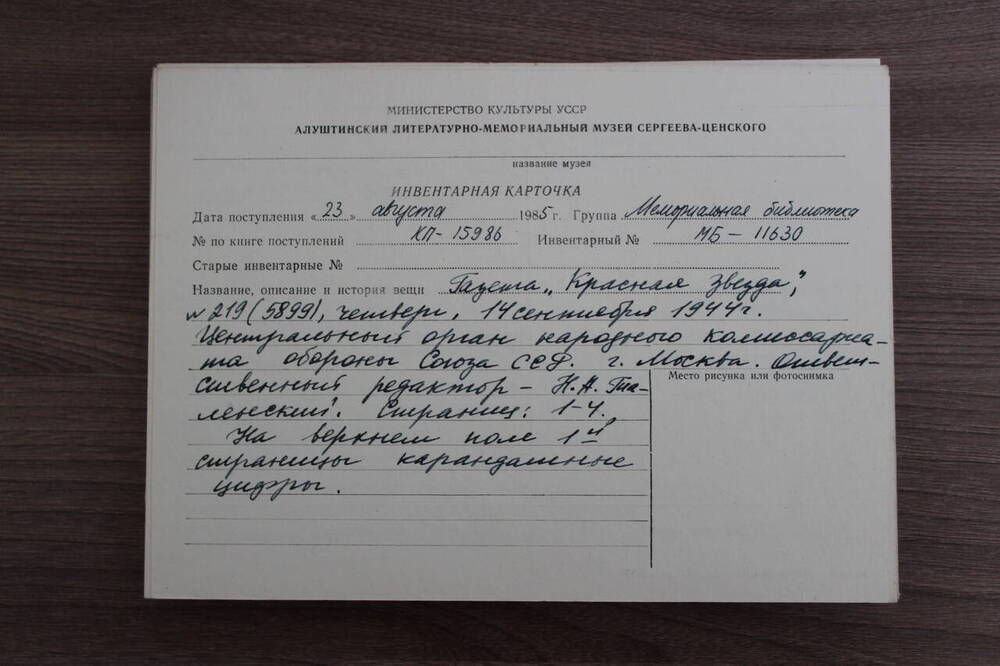 МИНИСТЕРСТВО КУЛЬТУРЫ УССР
АЛУШТИНСКИЙ ЛИТЕРАТУРНО-МЕМОРИАЛЬНЫЙ МУЗЕЙ СЕРГЕЕВА-ЦЕНСКОГО
название музея
ИНВЕНТАРНАЯ КАРТОЧКА
Дата поступления «23» августа 1985 г. Группа Мемориальная библиотека
№ по книге поступлений КП-15986 Инвентарный № МБ-11630
Старые инвентарные №
Название, описание и история вещи Газета „Красная Звезда",
№ 219 (5899), четверг, 14 сентября 1944г.
Центральный орган народного комиссариа-
та обороны Союза ССР. г. Москва. Ответ-
Место рисунка или фотоснимка
ственный редактор - Н.А. Та-
ленский. Страниц: 1-4.
На верхнем поле 1ой
страницы карандашные
цифры.